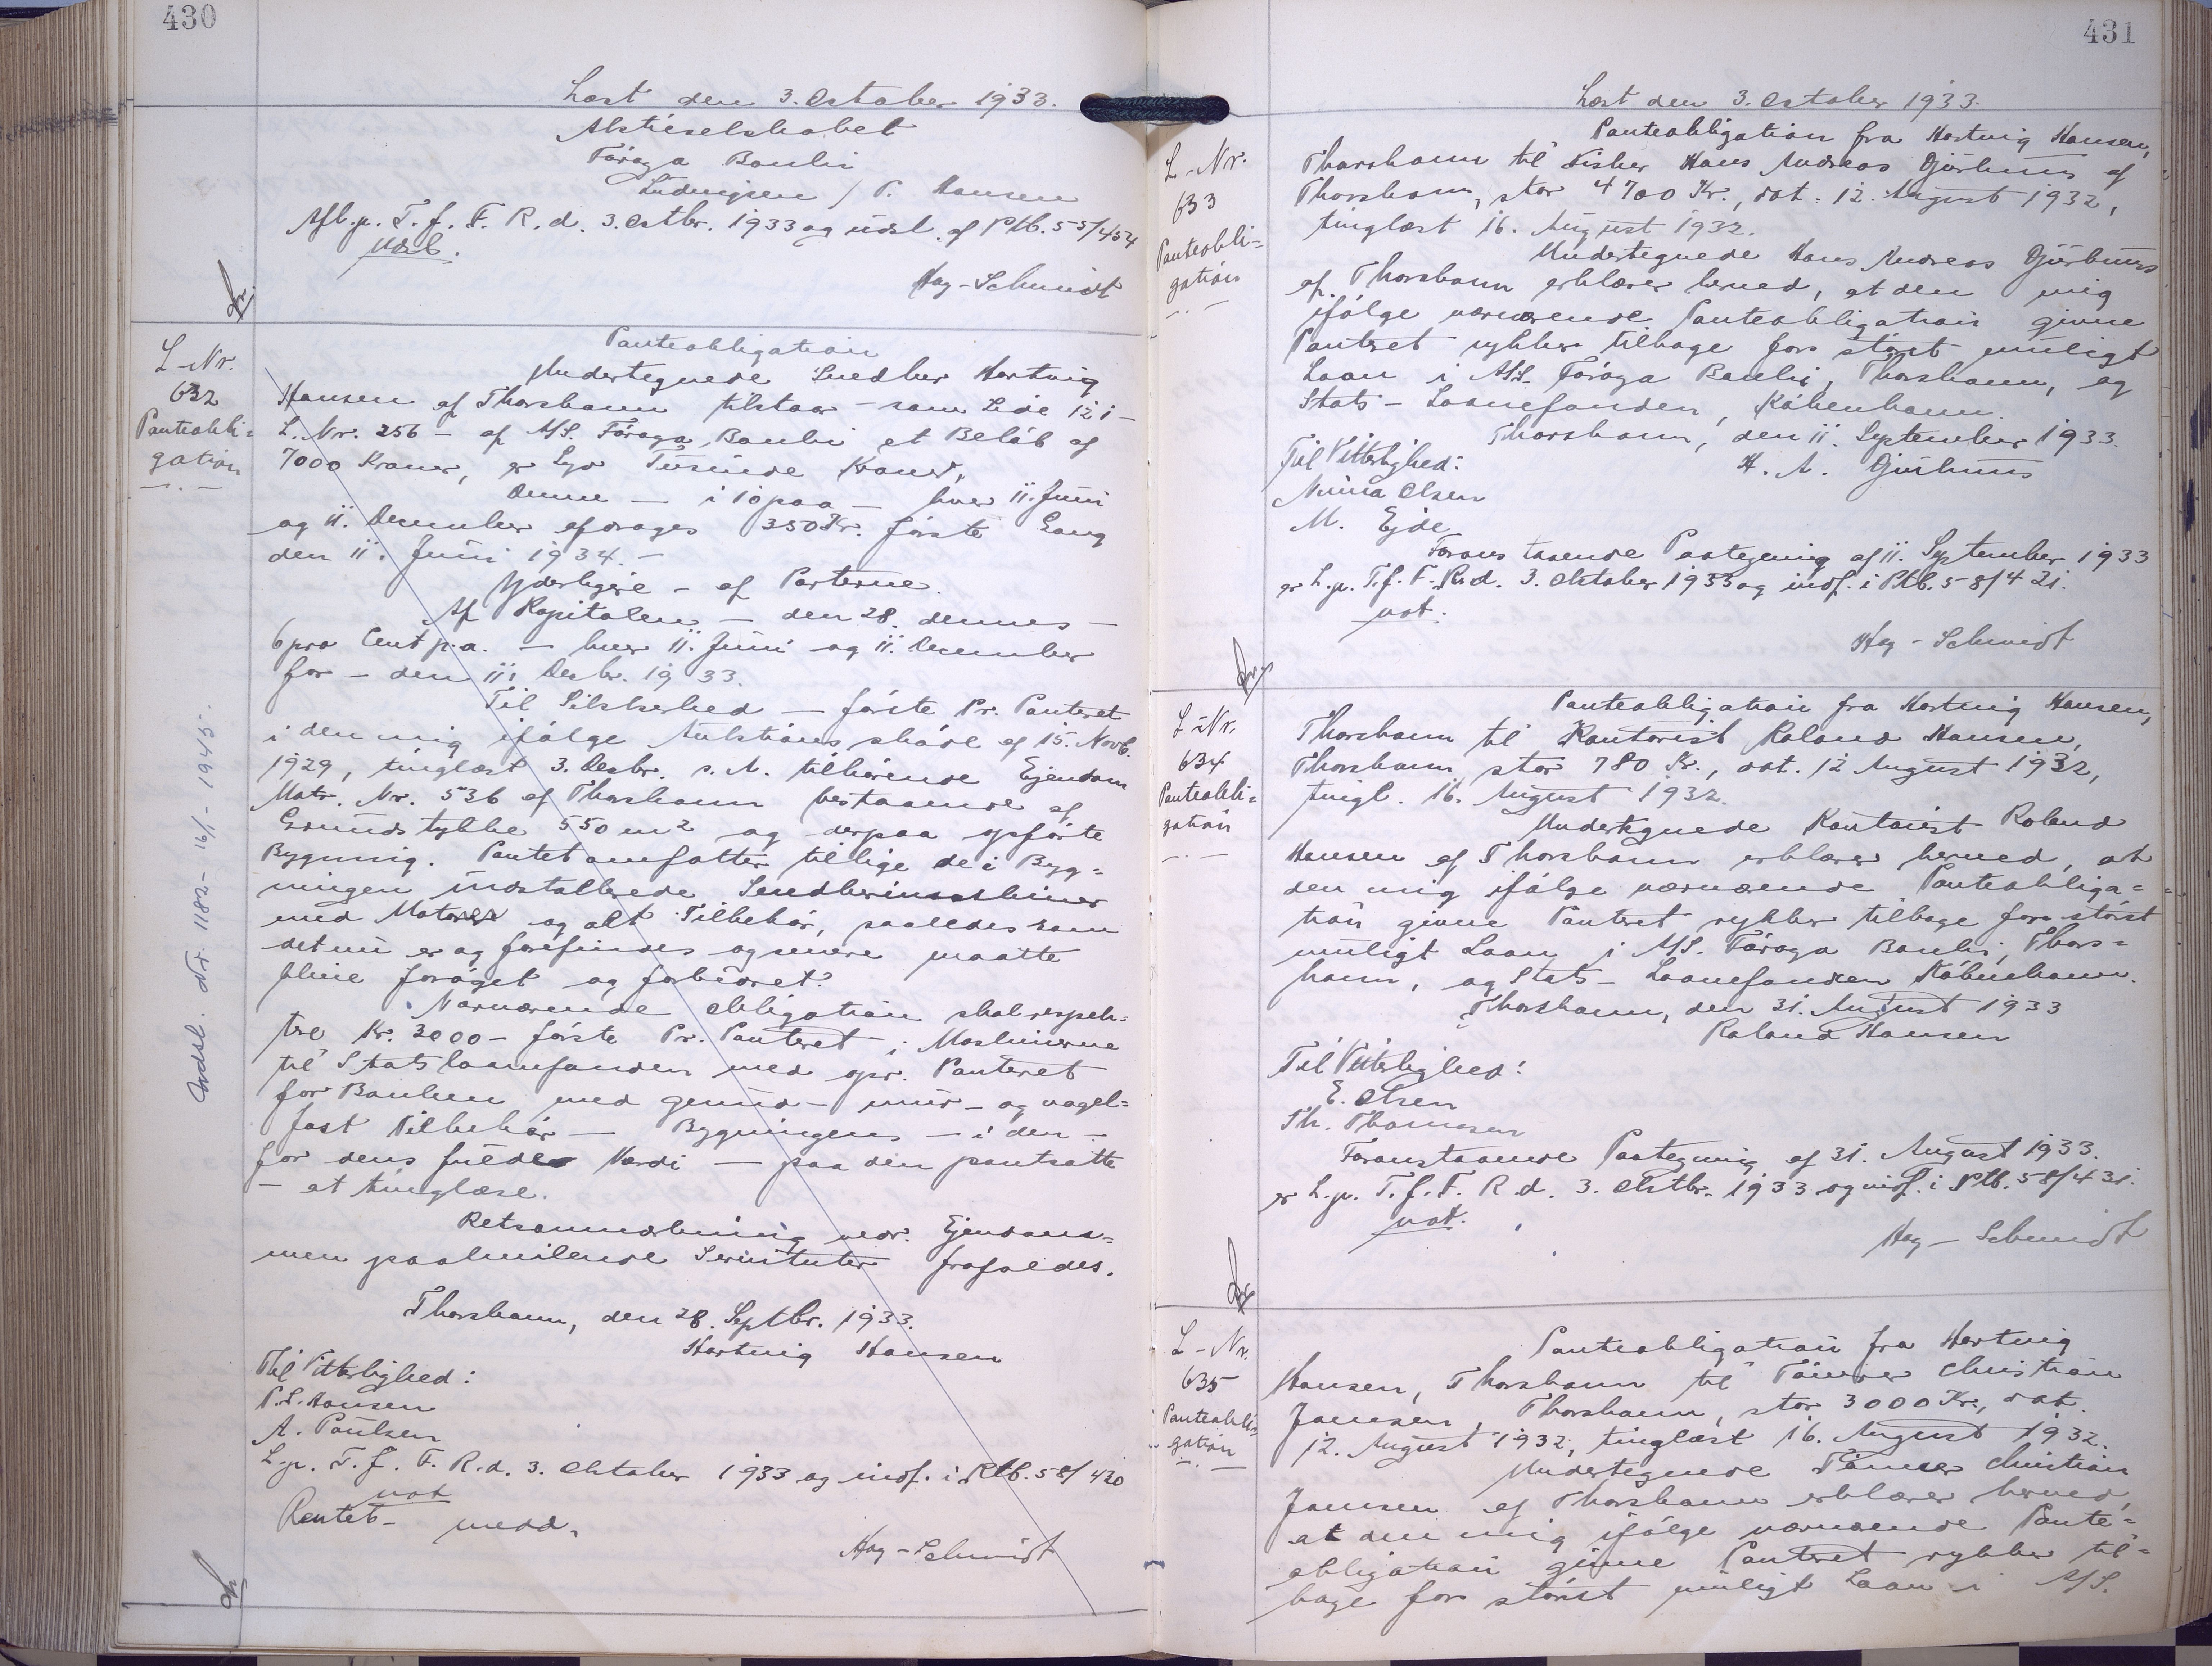 430
Læst den 3. October 1933.
Aktieselskabet
Föroya Banki
Ludvigsen / P. Hansen
Afl. p. T. f. F. R. d. 3. Octbr. 1933 og udsl. af Ptb. 55/454
udsl.
Høg-Schmidt
L-Nr.
632
Panteobli=
gation
Panteobligation
Undertegnede Snedker Hartvig
Hansen af Thorshavn tilstaar - som Lide 12 i -
L. Nr. 256 - af A/S. Föroya Banki et Beløb af
7000 Kroner, er Syv Tusinde Kroner.
Denne - i 10 paa - hver 11. Juni
og 11. December afdrages 350 Kr. første Gang
den 11. Juni 1934. -
Yderligere - af Parterne.
Af Kapitalen - den 28. dennes -
6 pro Cent p.a. - hver 11. Juni og 11. December
for - den 11. Decbr. 1933.
Til Sikkerhed - første Pr. Panteret
i den mig ifølge Auktionsskøde af 15. Novb.
1929, tinglæst 3. Decbr. s. A. tilhørende Ejendom
Matr. Nr. 536 af Thorshavn bestaaende af
Grundstykke 550 m2 og derpaa opførte
Bygning. Pantet omfatter tillige de i Byg=
ningen indstallerede Snedkerimaskiner
med Motorer og alt Tilbehør, saaledes som
det nu er og forefindes og senere maatte
blive forøget og forbedret.
Nærværende Obligation skal respek=
tre Kr. 3000 - første Pr. Panteret i Maskinerne
til Statslaanefonden med opr. Panteret
for Banken med grund- mur- og nagel=
fast Tilbehør - Bygningens - i den -
for dens fulde Værdi - paa den pantsatte
- at tinglæse.
Retsanmærkning vedr. Ejendom=
men paahvilende Servitutter frafaldes.
Thorshavn, den 28. Septbr. 1933.
Hartvig Hansen
Til Vitterlighed:
P. L. Hansen
A. Poulsen
L. p. T. f. F. R. d. 3. Oktober 1933 og indf. i Ptb. 58/430
not
Rentet- medd.
Høg-Schmidt
Udsl. Nr. 1182- 16/1- 1945.
431
Læst den 3. October 1933.
L-Nr.
633
Panteobli=
gation
Panteobligation fra Hartvig Hansen,
Thorshavn til Fisker Hans Andreas Djurhuus af
Thorshavn, stor 4700 Kr., dat. 12. August 1932,
tinglæst 16. August 1932.
Undertegnede Hans Andreas Djurhuus
af Thorshavn erklærer herved, at den mig
ifølge nærværende Panteobligation givne
Panteret rykker tilbage for størst muligt
Laan i A/S. Föroya Banki, Thorshavn, og
Stats-Laanefonden, København.
Thorshavn, den 11. September 1933.
Til Vitterlighed: H. A. Djurhuus
Ninna Olsen
M. Ejde
Foranstaaende Paategning af 11. September 1933
er L. p. T. f. F. R. d. 3. Oktober 1933 og indf. i Ptb. 58/421.
not.
Høg-Schmidt
L-Nr.
634
Panteobli=
gation
Panteobligation fra Hartvig Hansen,
Thorshavn til Kontorist Roland Hansen,
Thorshavn stor 780 Kr., dat. 12 August 1932,
tingl. 16. August 1932.
Undertegnede Kontorist Roland
Hansen af Thorshavn erklærer herved, at
den mig ifølge nærværende Panteobliga=
tion givne Panteret rykker tilbage for størst
muligt Laan i A/S. Föroya Banki, Thors=
havn, og Stats-Laanefonden København.
Thorshavn, den 31. August 1933
Roland Hansen
Til Vitterlighed:
E. Olsen
Th. Thomsen
Foranstaaende Paategning af 31. August 1933.
er L. p. T. f. F. R. d. 3. Octbr. 1933 og indf. i Ptb. 58/431.
not.
Høg-Schmidt
L-Nr.
635
Panteobli=
gation
Panteobligation fra Hartvig
Hansen, Thorshavn til Tømrer Christian
Joensen, Thorshavn, stor 3000 Kr., dat.
12. August 1932, tinglæst 16. August 1932.
Undertegnede Tømrer Christian
Joensen af Thorshavn erklærer herved,
at den mig ifølge nærværende Pante=
obligation givne Panteret rykker til=
bage for størst muligt Laan i A/S.